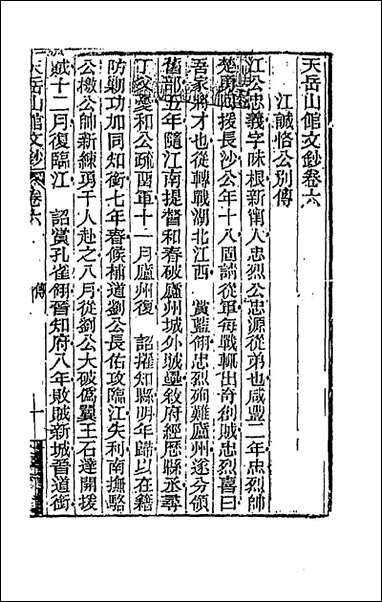 天岳山館文鈔卷六
江誠恪公別傳
江公忠義字味根新甯人忠烈公忠源從弟也咸豐二年忠烈帥
楚勇回援長沙公年十八周請從軍每戰輒出奇創賊忠烈喜曰
吾家將才也從轉戰湖北江西 賞藍翎忠烈殉難廬州遂分領
舊部五年隨江南提督和春破廬州城外賊壘敘府經歷縣丞尋
丁父憂和公疏留軍十一月廬州復 詔擢知縣明年歸以在籍
防勦功加同知銜七年春候補道劉公長佑攻臨江失利南撫駱
公檄公帥新練勇千人赴之八月從劉公大破僞翼王石達開援
賊十二月復臨江 詔賞孔雀翎晉知府八年敗賊新城晉道銜
天岳山館文鈔 卷六 傳 一